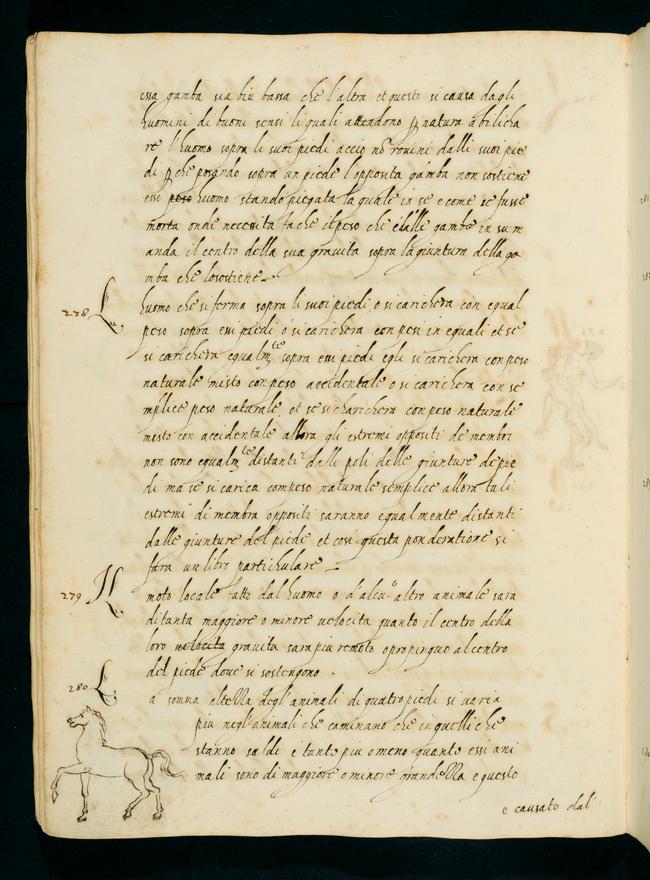 essa gamba sia più bassa che l'altra et questo si causa dagli
huomini di buoni sensi li quali attendono p natura a bilicha
re l'huomo sopra li suoi piedi accio nō rovini dalli suoi pie
di p che posando sopra un piede l'opposita gamba non sostiene
esso peso huomo stando piegata la quale in se e come se fusse
morta onde necessita fa che il peso che è dalle gambe in su m
anda il centro della sua gravita sopra la giuntura della ga
mba che lo sostiene
278 L
huomo che si ferma sopra li suoi piedi o si carichera con equal
peso sopra essi piedi o si carichera con pesi inequali et se
si carichera equalmte sopra essi piedi egli si carichera con peso
naturale misto con peso accidentale o si carichera con se
mplice peso naturale et se si charichera con peso naturale
misto con accidentale allora gli estremi oppositi de membri
non sono equalmte distanti dalli poli delle giunture de pie
di ma se si carica con peso naturale semplice allora tali
estremi di membra oppositi saranno equalmente distanti
dalle giunture del piede et cosi questa ponderatione si
fara un libro partichulare
279 Il
moto locale fatto dal huomo o d'alcuo altro animale sara
di tanta maggiore o minore velocita quanto il centro della
loro velocita gravita sara piu remoto o propinquo al centro
del piede dove si sostengono.
280 L
a somma altezza degl'animali di quatro piedi si varia
piu negl'animali che caminano che in quelli che
stanno saldi e tanto piu o meno quanto essi ani
mali sono di maggiore o minore grandezza e questo
e causato dal